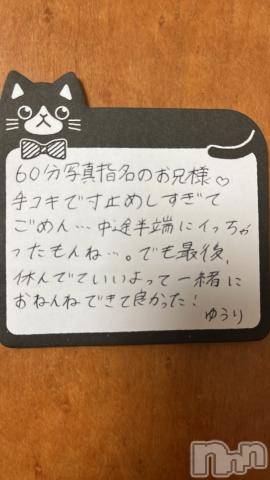 60分写真指名のお兄様♡
手コキで寸止めしすぎて
ごめん…中途半端にイッちゃ
ったもんね…。でも最後、
休んでていいよって一緒に
おねんねできて良かった！
ゆうり